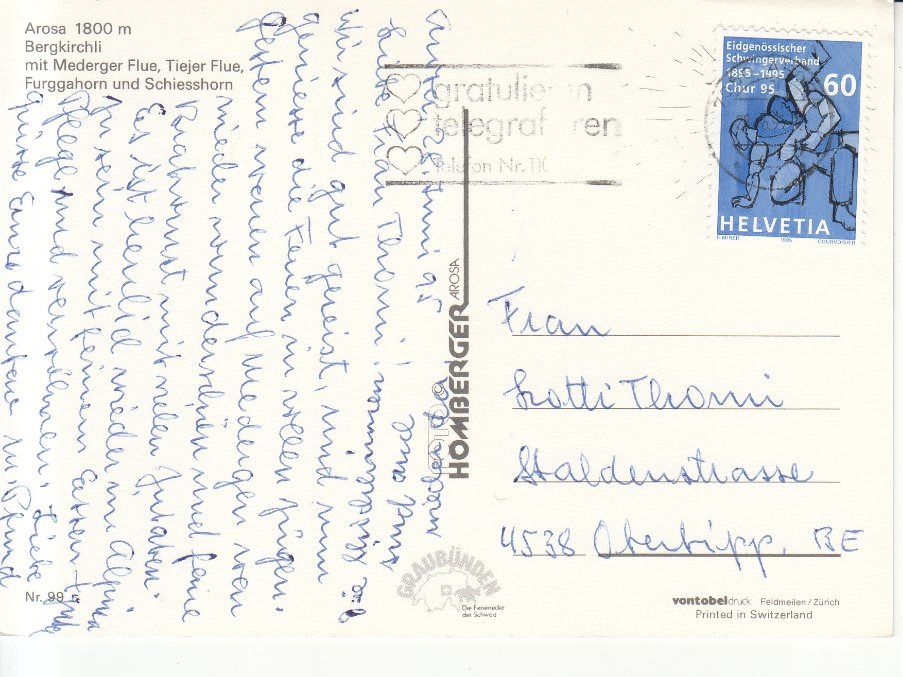 Arosa 1800 m
Bergkirchli
mit Mederger Flue, Tiejer Flue,
Furggahorn und Schiesshorn
gratulieren
telegrafieren
Telefon Nr. 110
Eidgenössischer
Schwingerverband
1895-1995
Chur 95
60
HELVETIA
1995
COURVOISIER
Arosa 95
Liebe Frau Thomi!
Wir sind gut gereist, und nun
geniesse die Ferien in vollen Zügen.
Gestern waren auf Medergen von
wieder wunderschön und feine
mit vielen Zutaten.
Es ist herrlich wieder im Alpina
zu sein mit feinem Essen
Pflege und verwöhnen. Liebe
Grüsse
sind auch
wieder da
Foto
HOMBERGER AROSA
Frau
Lotti Thomi
Staldenstrasse
4538 Oberbipp, BE
GRAUBÜNDEN
Die Ferienecke
der Schweiz
Nr. 99
vontobeldruck Feldmeilen/Zürich
Printed in Switzerland